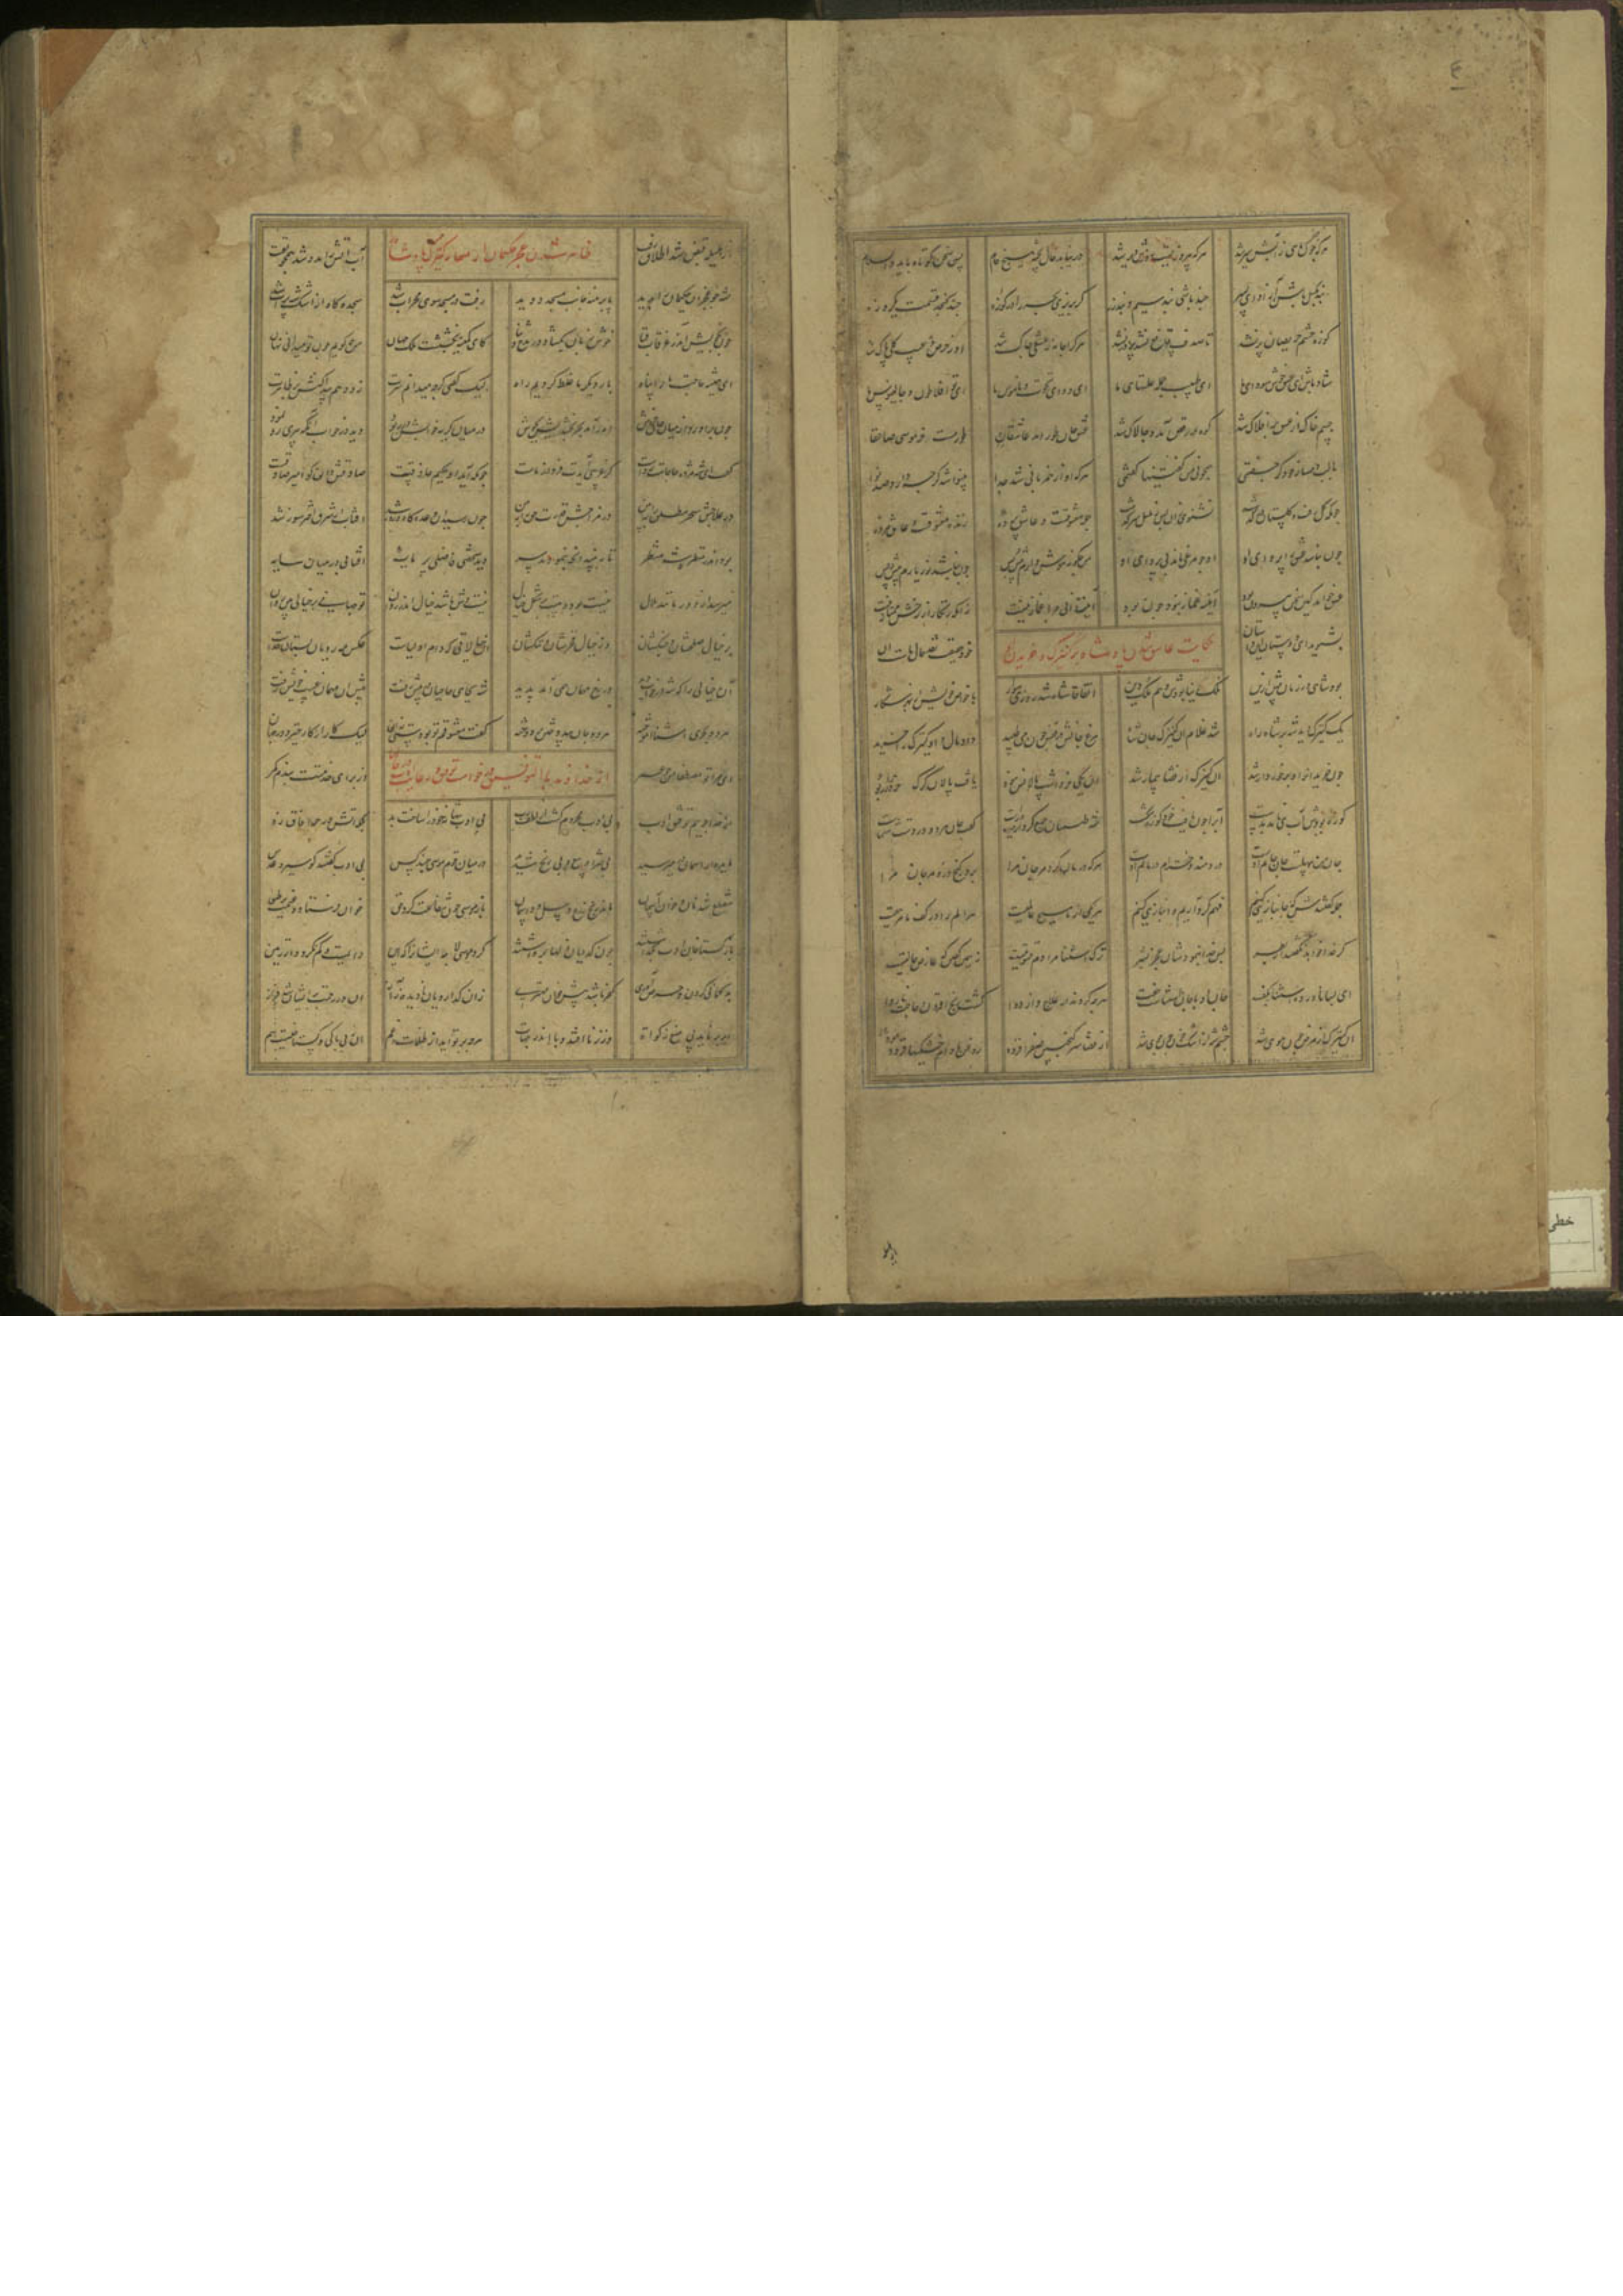 هرکه جز ماهی ز آبش سیر شد هرکه بی روزیست روزش دیر شد
درنیابد حال پخته هیچ خام پس سخن کوتاه باید والسلام
بند بگسل باش آزاد ای پسر چند باشی بند سیم و بند زر
گر بریزی بحر را در کوزه چند گنجد قسمت یک روزه
کوزه چشم حریصان پر نشد تا صدف قانع نشد پر در نشد
هرکرا جامه ز عشقی چاک شد او ز حرص و عیب کلی پاک شد
شاد باش ای عشق خوش سودای ما ای طبیب جمله علتهای ما
ای دوای نخوت و ناموس ما ای تو افلاطون و جالینوس ما
جسم خاک از عشق بر افلاک شد کوه در رقص آمد و چالاک شد
عشق جان طور آمد عاشقا طور مست و خر موسی صاعقا
با لب دمساز خود گر جفتمی همچو نی من گفتنیها گفتمی
هرکه او از همزبانی شد جدا بینوا شد گرچه دارد صد نوا
چونکه گل رفت و گلستان درگذشت نشنوی زان پس ز بلبل سرگذشت
جمله معشوقست و عاشق پرده زنده معشوقست و عاشق مرده
چون نباشد عشق را پروای او او چو مرغی ماند بی پر وای او
من چگونه هوش دارم پیش و پس چون نباشد نور یارم پیش و پس
عشق خواهد کین سخن بیرون بود آینه غماز نبود چون بود
آینت دانی چرا غماز نیست زانکه زنگار از رخش ممتاز نیست
حکایت عاشق شدن پادشاه بر کنیزک و خریدن
بشنوید ای دوستان این داستان خود حقیقت نقد حال ماست آن
بود شاهی در زمانی پیش ازین ملک دنیا بودش و هم ملک دین
اتفاقا شاه شد روزی سوار با خواص خویش از بهر شکار
یک کنیزک دید شه بر شاه راه شد غلام آن کنیزک جان شاه
مرغ جانش در قفس چون می طپید داد مال و آن کنیزک را خرید
چون خرید او را و برخوردار شد آن کنیزک از قضا بیمار شد
آن یکی خر داشت پالانش نبود یافت پالان گرگ خر را در ربود
کوزه بودش آب می نامد بدست آب را چون یافت خود کوزه شکست
شه طبیبان جمع کرد از چپ و راست گفت جان هر دو در دست شماست
جان من سهلست جان جانم اوست دردمند و خسته ام درمانم اوست
هرکه درمان کرد مر جان مرا برد گنج و در و مرجان مرا
جمله گفتندش که جانبازی کنیم فهم گرد آریم و انبازی کنیم
هر یکی از ما مسیح عالمیست هر الم را در کف ما مرهمیست
گر خدا خواهد نگفتند از بطر پس خدا بنمودشان عجز بشر
ترک استثنا مرادم قسوتیست نه همین گفتن که عارض حالتیست
ای بسا ناورده استثنا بگفت جان او با جان استثناست جفت
هرچه کردند از علاج و از دوا گشت رنج افزون و حاجت ناروا
آن کنیزک از مرض چون موی شد چشم شه از اشک خون چون جوی شد
از قضا سرکنگبین صفرا فزود روغن بادام خشکی می فزود
از هلیله قبض شد اطلاق رفت آب آتش را مدد شد همچو نفت
ظاهر شدن عجز حکیمان از معالجه کنیزک پادشاه
شه چو عجز آن حکیمان را بدید پابرهنه جانب مسجد دوید
رفت در مسجد سوی محراب شد سجده گاه از اشک شه پر آب شد
چون بخویش آمد ز غرقاب فنا خوش زبان بگشاد در مدح و ثنا
کای کمینه بخششت ملک جهان من چه گویم چون تو میدانی نهان
ای همیشه حاجت ما را پناه بار دیگر ما غلط کردیم راه
لیک گفتی گرچه میدانم سرت زود هم پیدا کنش بر ظاهرت
چون برآورد از میان جان خروش اندر آمد بحر بخشایش بجوش
در میان گریه خوابش در ربود دید در خواب او که پیری رو نمود
گفت ای شه مژده حاجاتت رواست گر غریبی آیدت فردا ز ماست
چونکه آید او حکیم حاذقست صادقش دان کو امین صادقست
در علاجش سحر مطلق را ببین در مزاجش قدرت حق را ببین
چون رسید آن وعده گاه و روز شد آفتاب از شرق اختر سوز شد
بود اندر منظره شه منتظر تا ببیند آنچه بنمودند سر
دید شخصی فاضلی پر مایه آفتابی در میان سایه
میرسید از دور مانند هلال نیست بود و هست بر شکل خیال
نیست وش باشد خیال اندر روان تو جهانی بر خیالی بین روان
بر خیالی صلحشان و جنگشان وز خیالی فخرشان و ننگشان
آن خیالاتی که دام اولیاست عکس مه رویان بستان خداست
آن خیالی را که شه در خواب دید در رخ مهمان همی آمد پدید
شه بجای حاجبان در پیش رفت پیش آن مهمان غیب خویش رفت
هر دو بحری آشنا آموخته هر دو جان بی دوختن بر دوخته
گفت معشوقم تو بودستی نه آن لیک کار از کار خیزد در جهان
ای مرا تو مصطفی من چون عمر از برای خدمتت بندم کمر
از خداوند تعالی توفیق خواستن و رعایت ادب
از خدا جوییم توفیق ادب بی ادب محروم گشت از لطف رب
بی ادب تنها نه خود را داشت بد بلکه آتش در همه آفاق زد
مایده از آسمان در میرسید بی شرا و بیع و بی گفت و شنید
در میان قوم موسی چند کس بی ادب گفتند کو سیر و عدس
منقطع شد نان و خوان از آسمان ماند رنج زرع و بیل و داسمان
باز عیسی چون شفاعت کرد حق خوان فرستاد و غنیمت بر طبق
باز گستاخان ادب بگذاشتند چون گدایان زلها برداشتند
بدگمانی کردن و حرص آوری کفر باشد پیش خوان مهتری
زان گدارویان نادیده ز آز آن در رحمت بریشان شد فراز
ابر برناید پی منع زکات وز زنا افتد وبا اندر جهات
هرچه بر تو آید از ظلمات و غم آن ز بی باکی و گستاخیست هم
خطی